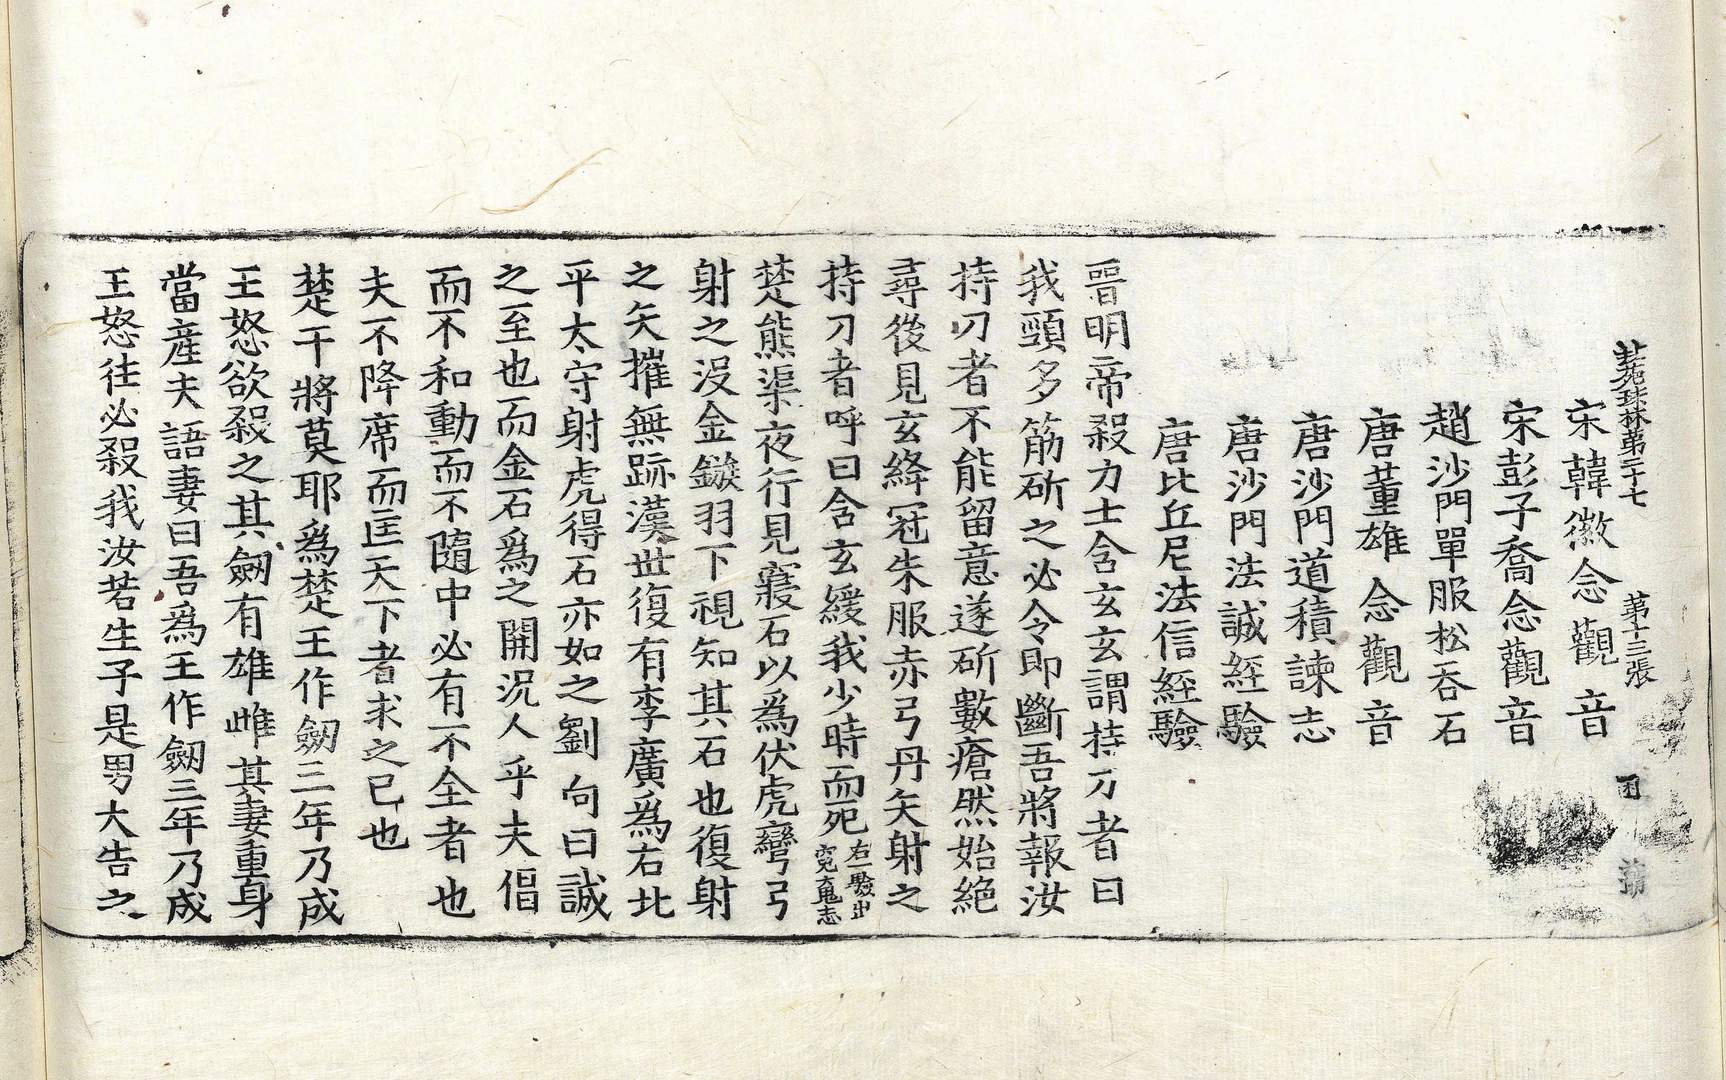 苑珠林第二十七 第十三張
宋韓徽念觀音
宋彭子喬念觀音
趙沙門單服松吞石
唐董雄念觀音
唐沙門道積諫志
唐沙門法誠經驗
唐比丘尼法信經驗
晋明帝殺力士含玄玄謂持刀者曰
我頸多筋斫之必令即斷吾將報汝
持刀者不能留意遂斫數瘡然始絕
尋後見玄絳冠朱服赤弓丹矢射之
持刀者呼曰含玄緩我少時而死右一驗出寃䰟志
楚熊渠夜行見寢石以爲伏虎彎弓
射之没金鏃羽下視知其石也復射
之矢摧無跡漢世復有李廣爲右北
平太守射虎得石亦如之劉向曰誠
之至也而金石爲之開況人乎夫倡
而不和動而不隨中必有不全者也
夫不降席而匡天下者求之已也
楚干將莫耶爲楚王作劒三年乃成
王怒欲殺之其劒有雄雌其妻重身
當産夫語妻曰吾爲王作劒三年乃成
王怒往必殺我汝若生子是男大告之